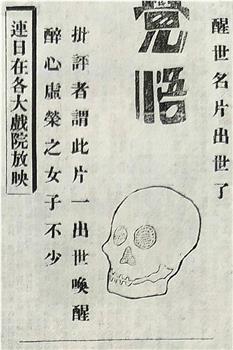 醒世名片出世了
覺悟
批評者謂此片一出世喚醒
醉心虛榮之女子不少
連日在各大戲院放映